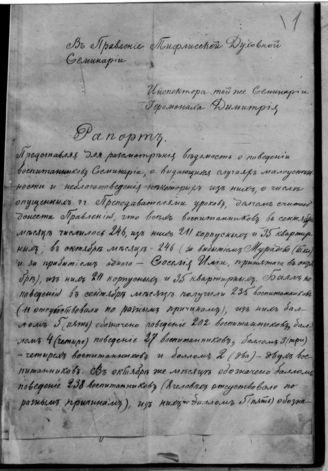 1
Въ Правленіе Тифлисской Духовной
Семинаріи
Инспектора той же Семинаріи
Іеромонаха Димитрія
Рапортъ.
Представляя для разсмотрѣнія вѣдомость о поведеніи
воспитанниковъ Семинаріи, о выдающихся случаяхъ малоуспѣш-
ности и неблагоповеденія нѣкоторыхъ изъ нихъ, о числѣ
опущенныхъ гг. Преподавателями уроковъ, долгомъ считаю
донести Правленію, что всѣхъ воспитанниковъ въ сентябрѣ
мѣсяцѣ числилось 246, изъ нихъ 211 корпусныхъ и 35 квартир-
ныхъ, въ октябрѣ мѣсяцѣ - 246 (за выбытіемъ
и за прибытіемъ одного - принятаго въ октя-
брѣ), изъ нихъ 211 корпусныхъ и 35 квартирныхъ. Баллъ по
поведенію въ сентябрѣ мѣсяцѣ получили 235 воспитанниковъ
(11 отсутствовало по разнымъ причинамъ), изъ нихъ бал-
ломъ 5 (пять) обозначено поведеніе 202 воспитанниковъ, бал-
ломъ 4 (четыре) поведеніе 27 воспитанниковъ, балломъ 3 (три)
- четырехъ воспитанниковъ и балломъ 2 (два) - двухъ вос-
питанниковъ. Въ октябрѣ же мѣсяцѣ обозначено балломъ
поведеніе 238 воспитанниковъ (8 человѣкъ отсутствовало по
разнымъ причинамъ), изъ нихъ балломъ 5 (пять) обозна-